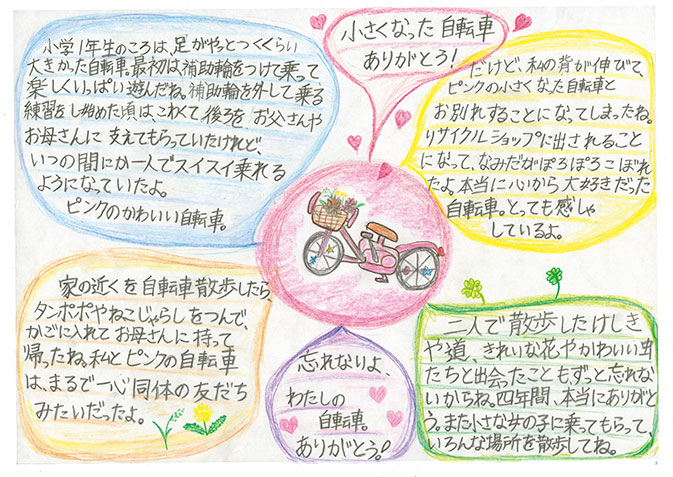 小さくなった自転車
ありがとう!
小学1年生のころは、足がやっとつくくらい
大きかった自転車。最初は、補助輪をつけて乗って
楽しくいっぱい遊んだね。補助輪を外して乗る
練習をし始めた頃は、こわくて後ろを お父さんや
お母さんに 支えてもらっていたけれど、
いつの間にか一人でスイスイ乗れる
ようになっていたよ。
ピンクのかわいい自転車。
だけど、私の背が伸びて、
ピンクの小さくなった自転車と
お別れすることになってしまったね。
リサイクルショップに出されること
になって、なみだがぽろぽろこぼれ
たよ。本当に心から大好きだった
自転車。とっても感しゃ
しているよ。
家の近くを自転車散歩したら、
タンポポやねこじゃらしをつんで、
かごに入れてお母さんに持って
帰ったね。私とピンクの自転車
は、まるで一心同体の友だち
みたいだったよ。
忘れないよ、
わたしの
自転車。
ありがとう!
二人で散歩したけしき
や道、きれいな花やかわいい虫
たちと出会ったこともずっと忘れな
いからね。四年間、本当にありがと
う。また小さな女の子に乗ってもらって、
いろんな場所を散歩してね。